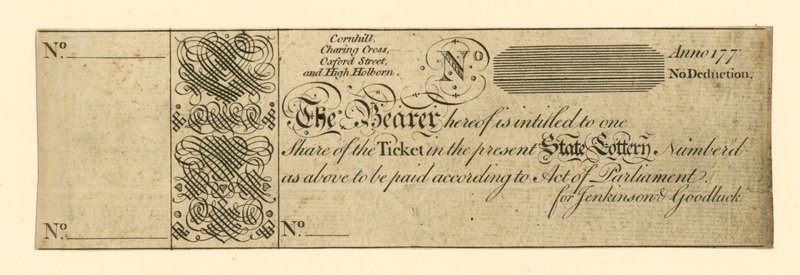 No.
No.
Cornhill,
Charing Cross,
Oxford Street,
and High Holborn.
No
Anno 177
No Deduction.
The Bearer hereof is intitled to one
Share of the Ticket in the present State Lottery Number'd
as above to be paid according to Act of Parliament,
for Jenkinson & Goodluck
No.